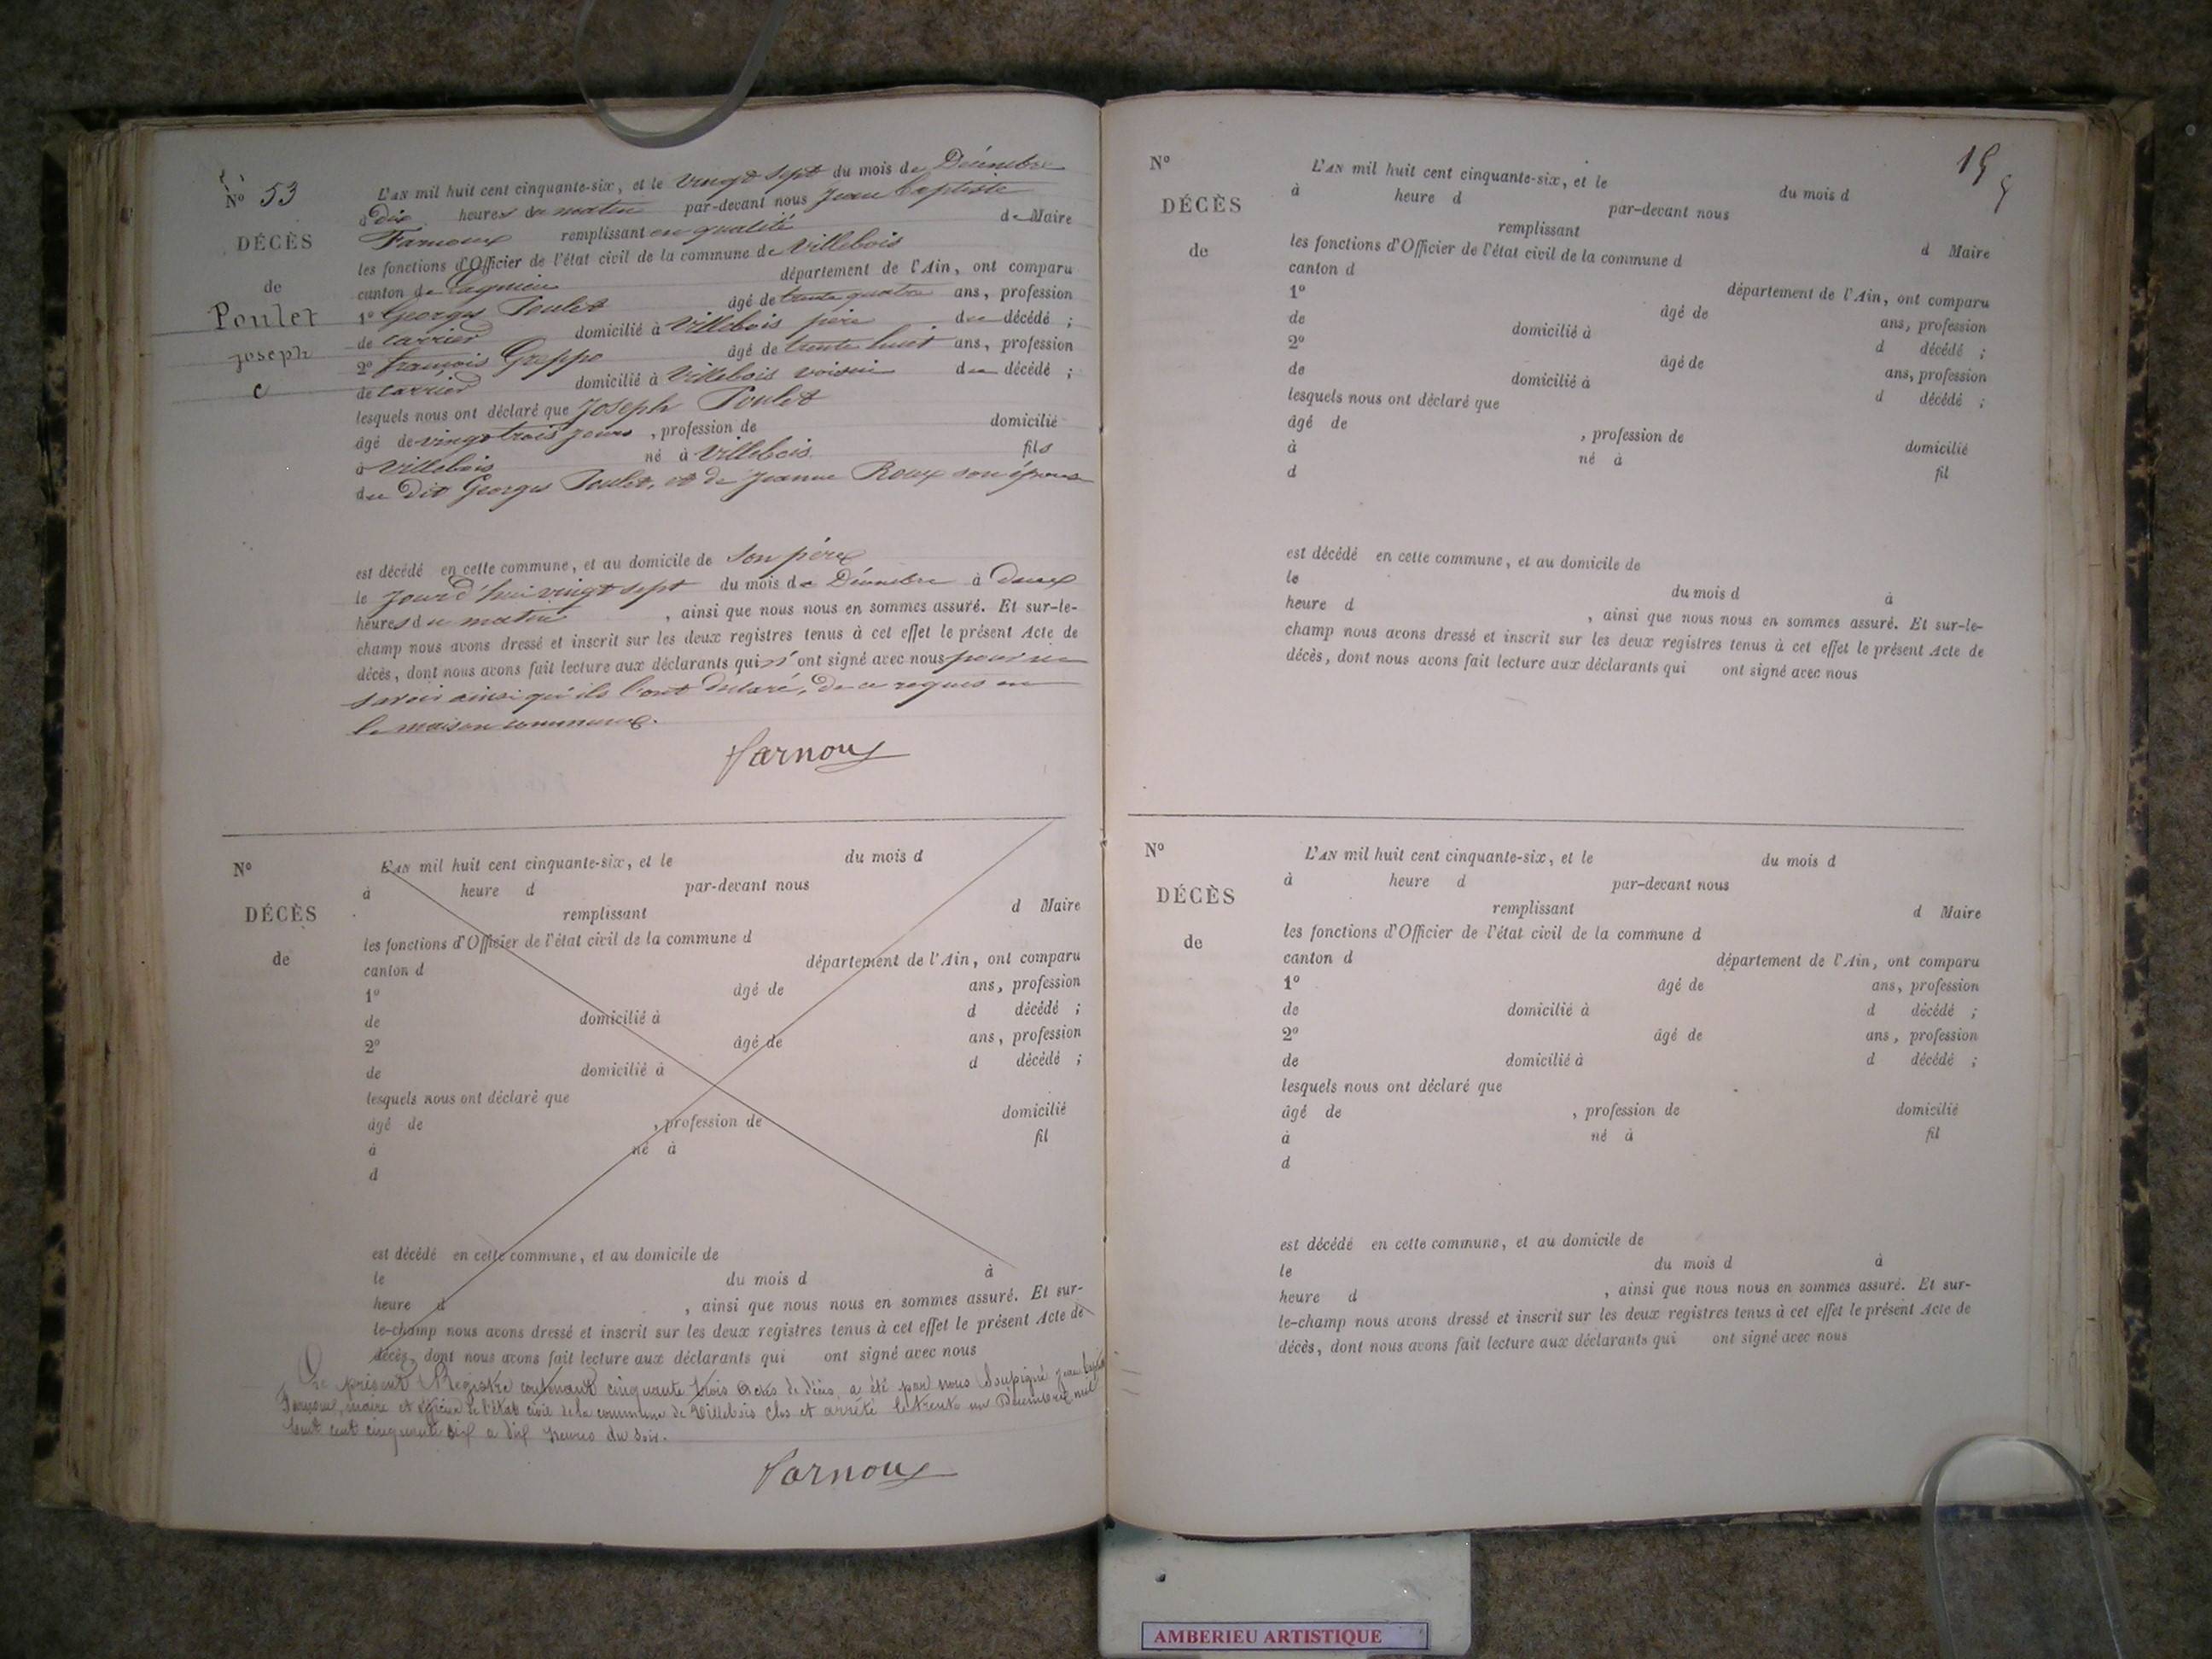 N° 53
DÉCÈS
de
Poulet
joseph
L'AN mil huit cent cinquante-six, et le vingt sept du mois de Décembre
à dix heures du matin par-devant nous Jean baptiste
Farnoux remplissant en qualité de Maire
les fonctions d'Officier de l'état civil de la commune de Villebois
canton de Lagnieu département de l'Ain, ont comparu
1° Georges Poulet âgé de trente quatre ans, profession
de carrier domicilié à Villebois père du décédé ;
2° françois Greppo âgé de trente huit ans, profession
de carrier domicilié à Villebois voisin du décédé ;
lesquels nous ont déclaré que Joseph Poulet
âgé de vingt trois jours , profession de domicilié
à Villebois né à Villebois fils
du Dit Georges Poulet, et de Jeanne Roux son épouse
est décédé en cette commune, et au domicile de son père
le jourd'hui vingt sept du mois de Décembre à deux
heures du matin , ainsi que nous nous en sommes assuré. Et sur-le-
champ nous avons dressé et inscrit sur les deux registres tenus à cet effet le présent Acte de
décès, dont nous avons fait lecture aux déclarants qui n'ont signé avec nous pour ne
savoir ainsi qu'ils l'ont déclaré, de ce requis en
la maison commune.
Farnoux
N°
DÉCÈS
de
L'AN mil huit cent cinquante-six, et le du mois d
à heure d par-devant nous
remplissant d Maire
les fonctions d'Officier de l'état civil de la commune d
canton d département de l'Ain, ont comparu
1° âgé de ans, profession
de domicilié à d décédé ;
2° âgé de ans, profession
de domicilié à d décédé ;
lesquels nous ont déclaré que
âgé de , profession de domicilié
à né à fil
d
est décédé en cette commune, et au domicile de
le du mois d à
heure d , ainsi que nous nous en sommes assuré. Et sur-
le-champ nous avons dressé et inscrit sur les deux registres tenus à cet effet le présent Acte de
décès, dont nous avons fait lecture aux déclarants qui ont signé avec nous
Le présent Registre contenant cinquante trois actes de décès, a été par nous Soussigné Jean bapte
Farnoux, maire et officier de l'état civil de la commune de Villebois clos et arrêté le trente un Décembre mil
huit cent cinquante six a dix heures du soir.
Farnoux
N°
DÉCÈS
de
L'AN mil huit cent cinquante-six, et le du mois d
à heure d par-devant nous
remplissant d Maire
les fonctions d'Officier de l'état civil de la commune d
canton d département de l'Ain, ont comparu
1° âgé de ans, profession
de domicilié à d décédé ;
2° âgé de ans, profession
de domicilié à d décédé ;
lesquels nous ont déclaré que
âgé de , profession de domicilié
à né à fil
d
est décédé en cette commune, et au domicile de
le du mois d à
heure d , ainsi que nous nous en sommes assuré. Et sur-le-
champ nous avons dressé et inscrit sur les deux registres tenus à cet effet le présent Acte de
décès, dont nous avons fait lecture aux déclarants qui ont signé avec nous
N°
DÉCÈS
de
L'AN mil huit cent cinquante-six, et le du mois d
à heure d par-devant nous
remplissant d Maire
les fonctions d'Officier de l'état civil de la commune d
canton d département de l'Ain, ont comparu
1° âgé de ans, profession
de domicilié à d décédé ;
2° âgé de ans, profession
de domicilié à d décédé ;
lesquels nous ont déclaré que
âgé de , profession de domicilié
à né à fil
d
est décédé en cette commune, et au domicile de
le du mois d à
heure d , ainsi que nous nous en sommes assuré. Et sur-
le-champ nous avons dressé et inscrit sur les deux registres tenus à cet effet le présent Acte de
décès, dont nous avons fait lecture aux déclarants qui ont signé avec nous
AMBERIEU ARTISTIQUE